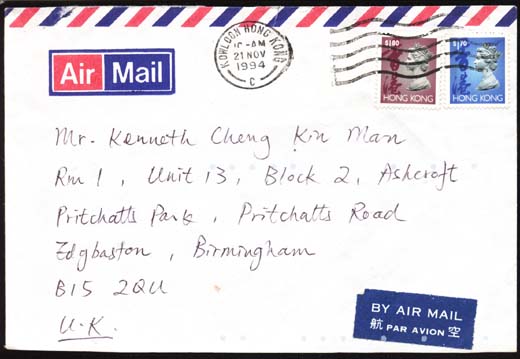 KOWLOON HONG KONG
10-AM
21 NOV
1994
C
$1.80
香港
HONG KONG
$1.70
香港
HONG KONG
Air Mail
Mr. Kenneth Cheng Kin Man
Rm 1, Unit 13, Block 2, Ashcroft
Pritchatts Park, Pritchatts Road
Edgbaston, Birmingham
B15 2QU
U.K.
BY AIR MAIL
航 PAR AVION 空